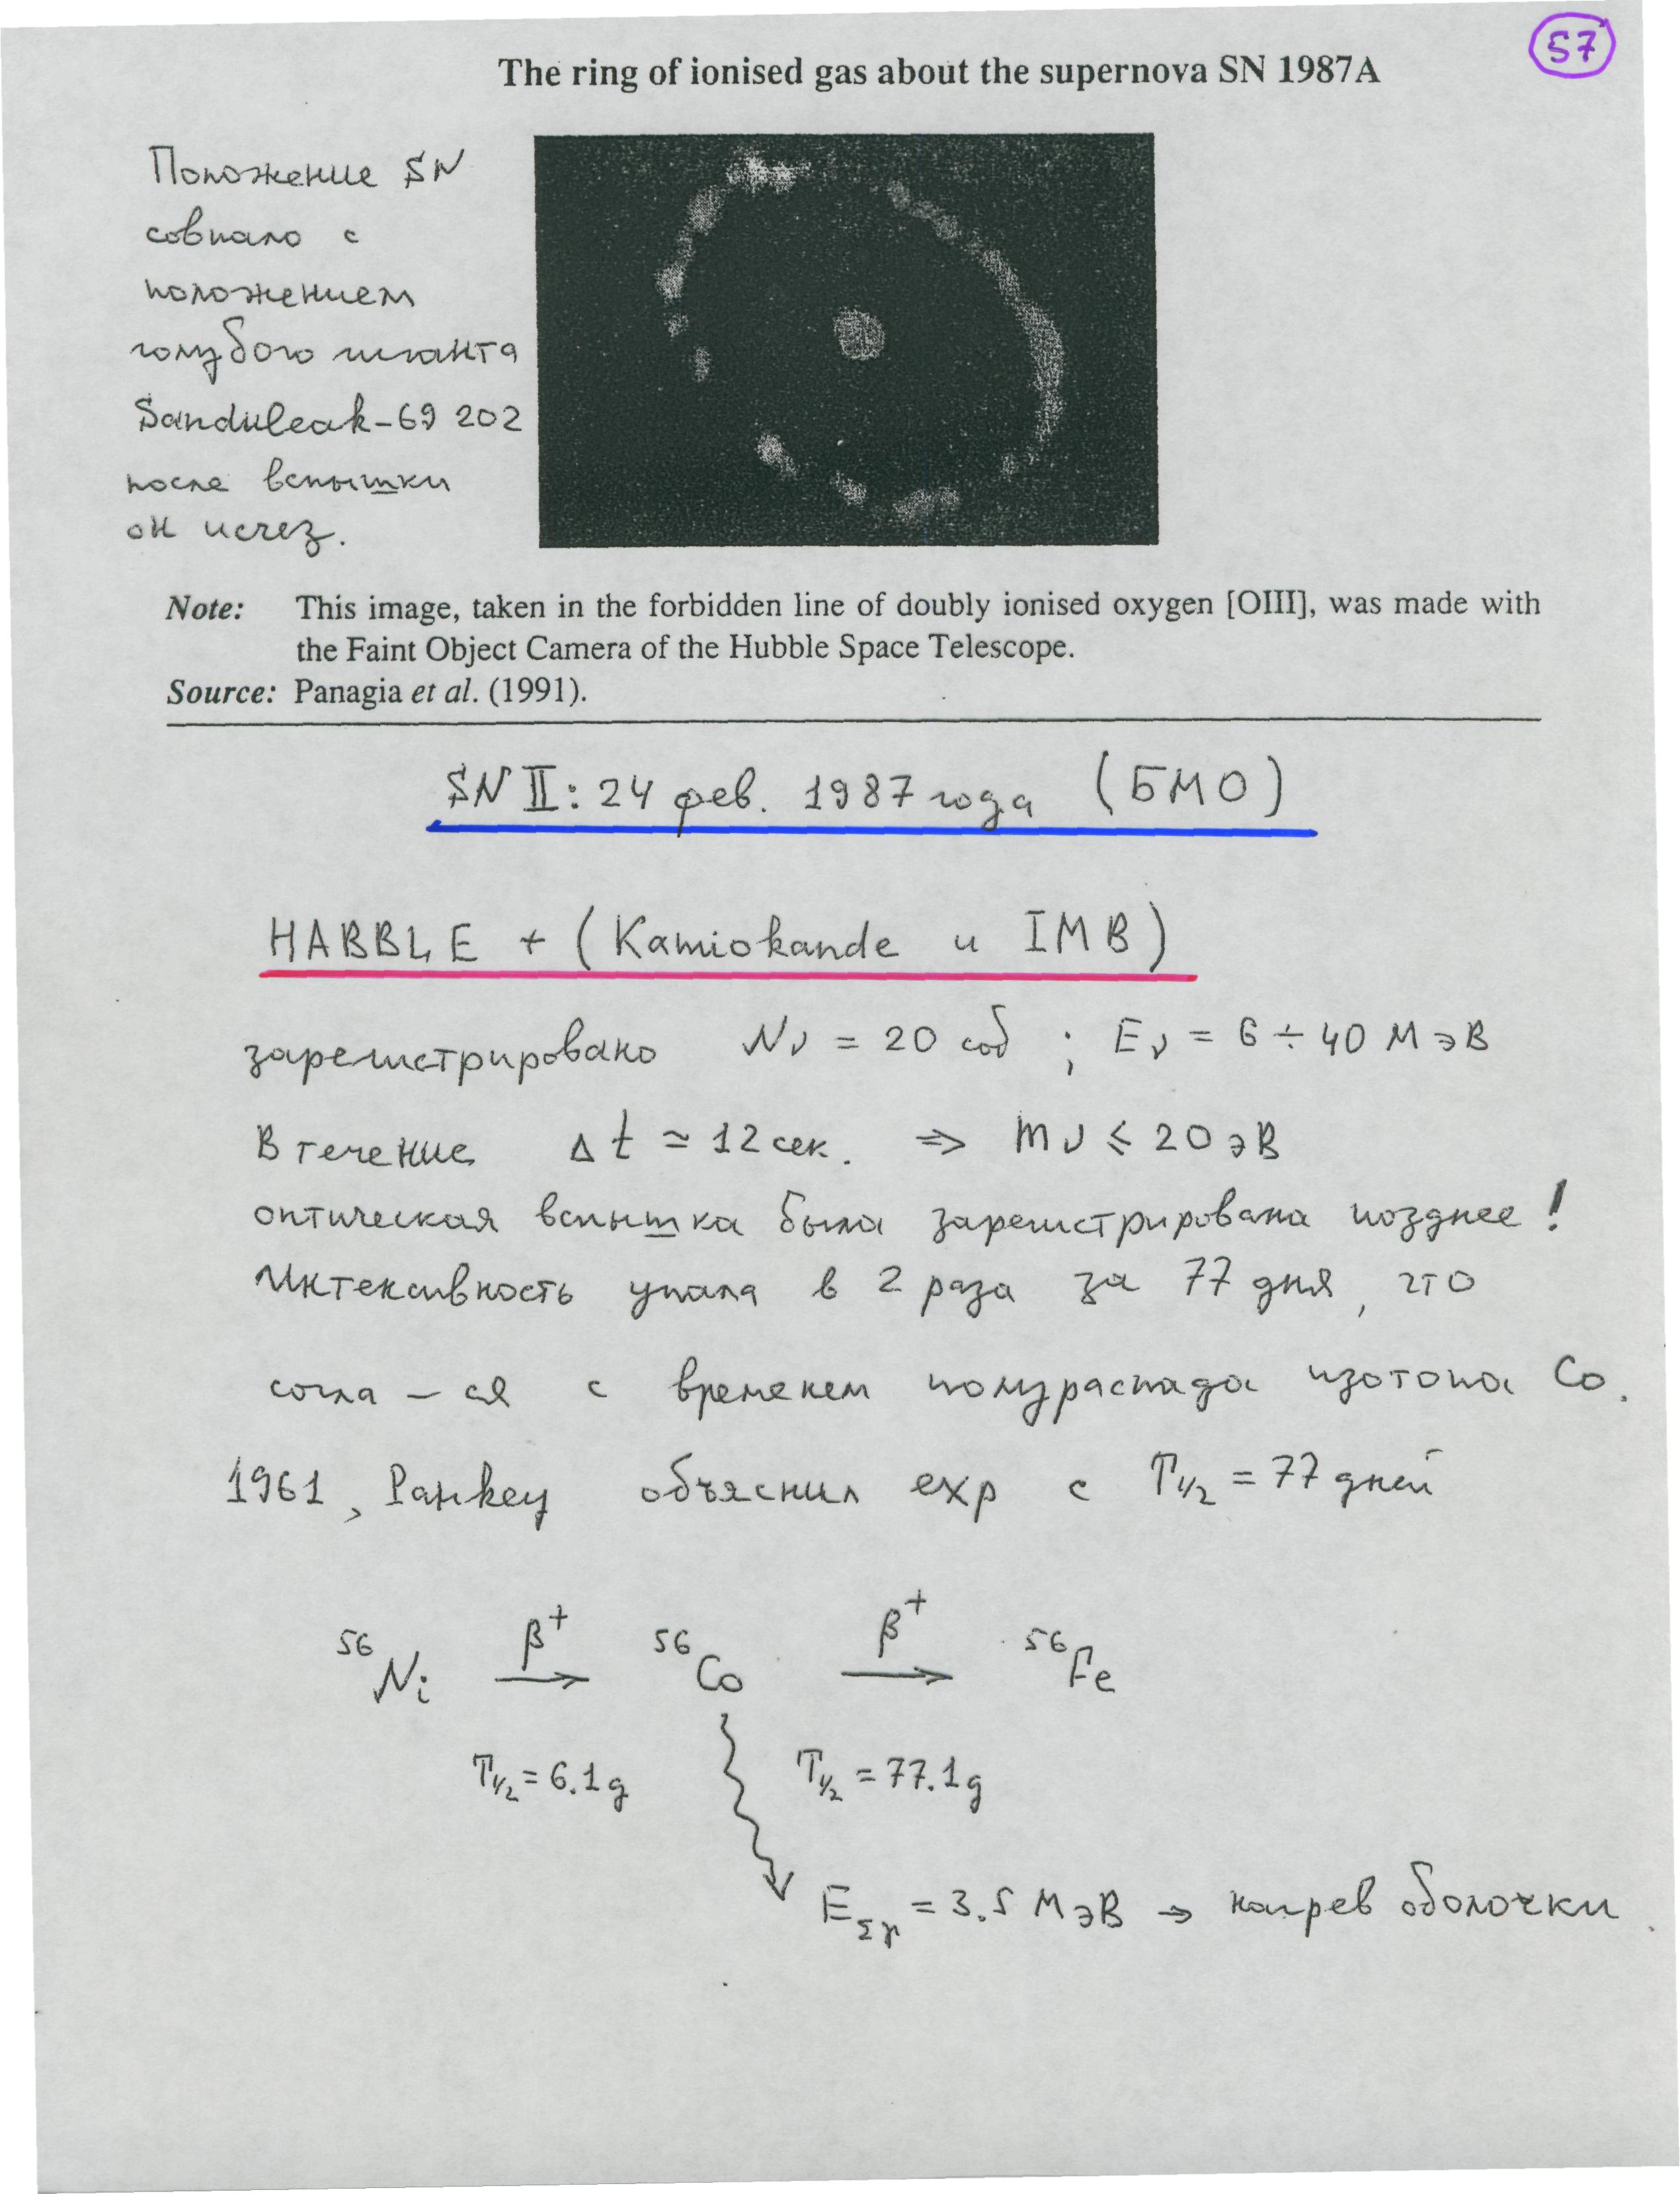 57
The ring of ionised gas about the supernova SN 1987A
Положение SN
совпало с
положением
голубого гиганта
Sanduleak-69 202
после вспышки
он исчез.
Note: This image, taken in the forbidden line of doubly ionised oxygen [OIII], was made with
the Faint Object Camera of the Hubble Space Telescope.
Source: Panagia et al. (1991).
SN II: 24 фев. 1987 года (БМО)
HABBLE + (Kamiokande и IMB)
зарегистрировано Nν = 20 соб ; Eν = 6 ÷ 40 МэВ
В течение Δt ≃ 12 сек. ⇒ mν ⩽ 20 эВ
оптическая вспышка была зарегистрирована позднее!
Интенсивность упала в 2 раза за 77 дня, что
согла-ся с временем полураспада изотопа Co.
1961, Pankey объяснил exp с T1/2 = 77 дней
56Ni β+→ 56Co β+→ 56Fe
T1/2 = 6.1 д T1/2 = 77.1 д
EΣγ = 3.5 МэВ → нагрев оболочки.